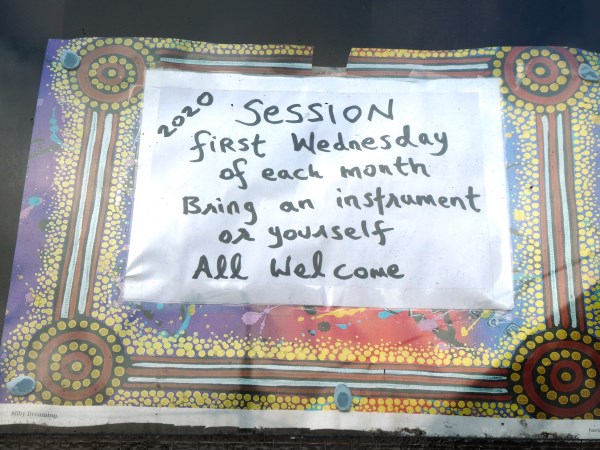 2020 SESSION
first Wednesday
of each month
Bring an instrument
or yourself
All Welcome